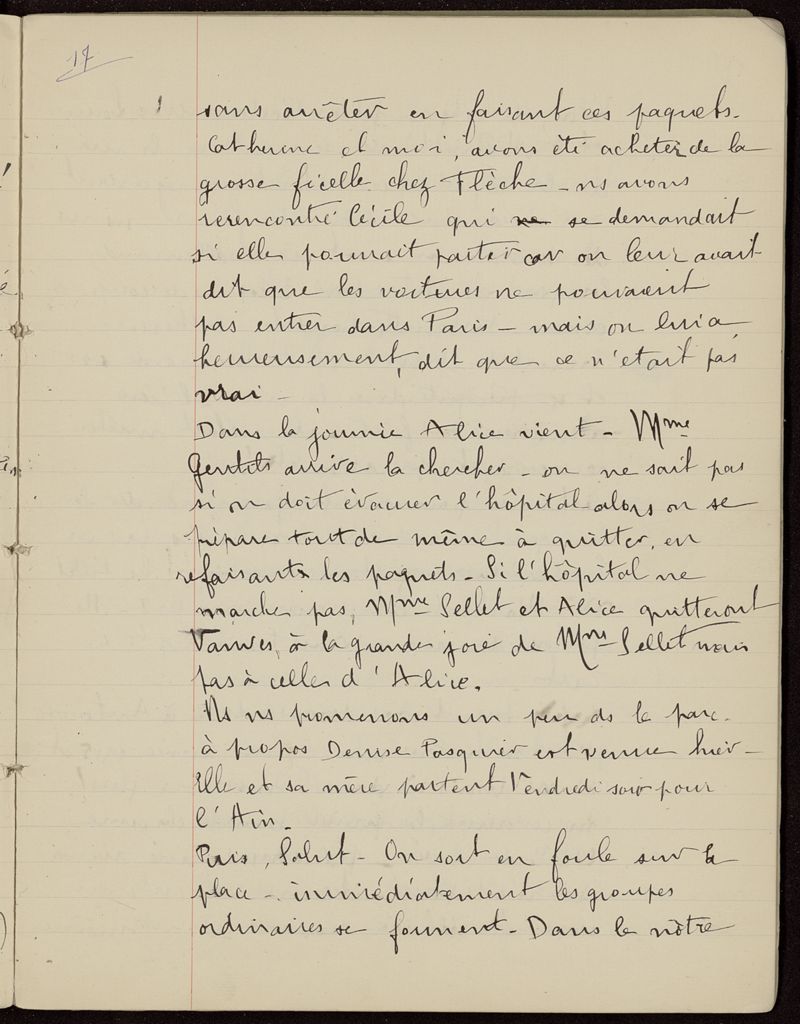 17
sans arrêter en faisant ces paquets.
Catherine et moi, avons été acheter de la
grosse ficelle chez Flèche - ns avons
rerencontré Cécile qui ne se demandait
si elle pourrait partir car on leur avait
dit que les voitures ne pouvaient
pas entrer dans Paris - mais on lui a
heureusement, dit que ce n'était pas
vrai -
Dans la journée Alice vient - Mme
Gentils arrive la chercher - on ne sait pas
si on doit évacuer l'hôpital alors on se
prépare tout de même à quitter, en
refaisant les paquets - Si l'hôpital ne
marche pas, Mme Sellet et Alice quitteront
Vanves, à la grande joie de Mme Sellet mais
pas à celle d'Alice.
Ns ns promenons un peu ds le parc.
à propos Denise Pasquier est venue hier -
Elle et sa mère partent Vendredi soir pour
l'Ain -
Puis, Salut - On sort en foule sur la
place - immédiatement les groupes
ordinaires se forment - Dans le nôtre